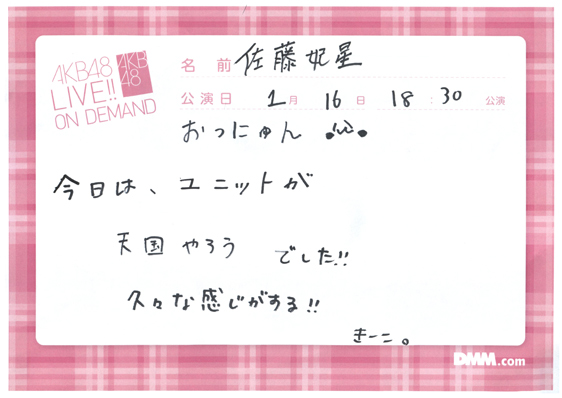 AKB48
LIVE!!
ON DEMAND
AKB
48
名 前 佐藤妃星
公演日 1月 16日 18:30 公演
おつにゅん
今日は、ユニットが
天国やろう でした!!
久々な感じがする!!
きーこ。
DMM.com